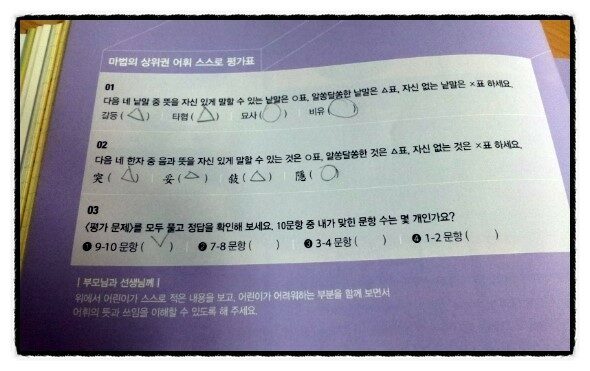 마법의 상위권 어휘 스스로 평가표
01
다음 네 낱말 중 뜻을 자신 있게 말할 수 있는 낱말은 ○표, 알쏭달쏭한 낱말은 △표, 자신 없는 낱말은 ×표 하세요.
갈등 (△) 타협 (△) 묘사 (○) 비유 (○)
02
다음 네 한자 중 음과 뜻을 자신 있게 말할 수 있는 것은 ○표, 알쏭달쏭한 것은 △표, 자신 없는 것은 ×표 하세요.
突 (△) 妥 (△) (△) 隱 (○)
03
<평가 문제>를 모두 풀고 정답을 확인해 보세요. 10문항 중 내가 맞힌 문항 수는 몇 개인가요?
❶ 9-10 문항 (✓) ❷ 7-8 문항 ( ) ❸ 3-4 문항 ( ) ❹ 1-2 문항 ( )
| 부모님과 선생님께 |
위에서 어린이가 스스로 적은 내용을 보고, 어린이가 어려워하는 부분을 함께 보면서
어휘의 뜻과 쓰임을 이해할 수 있도록 해 주세요.